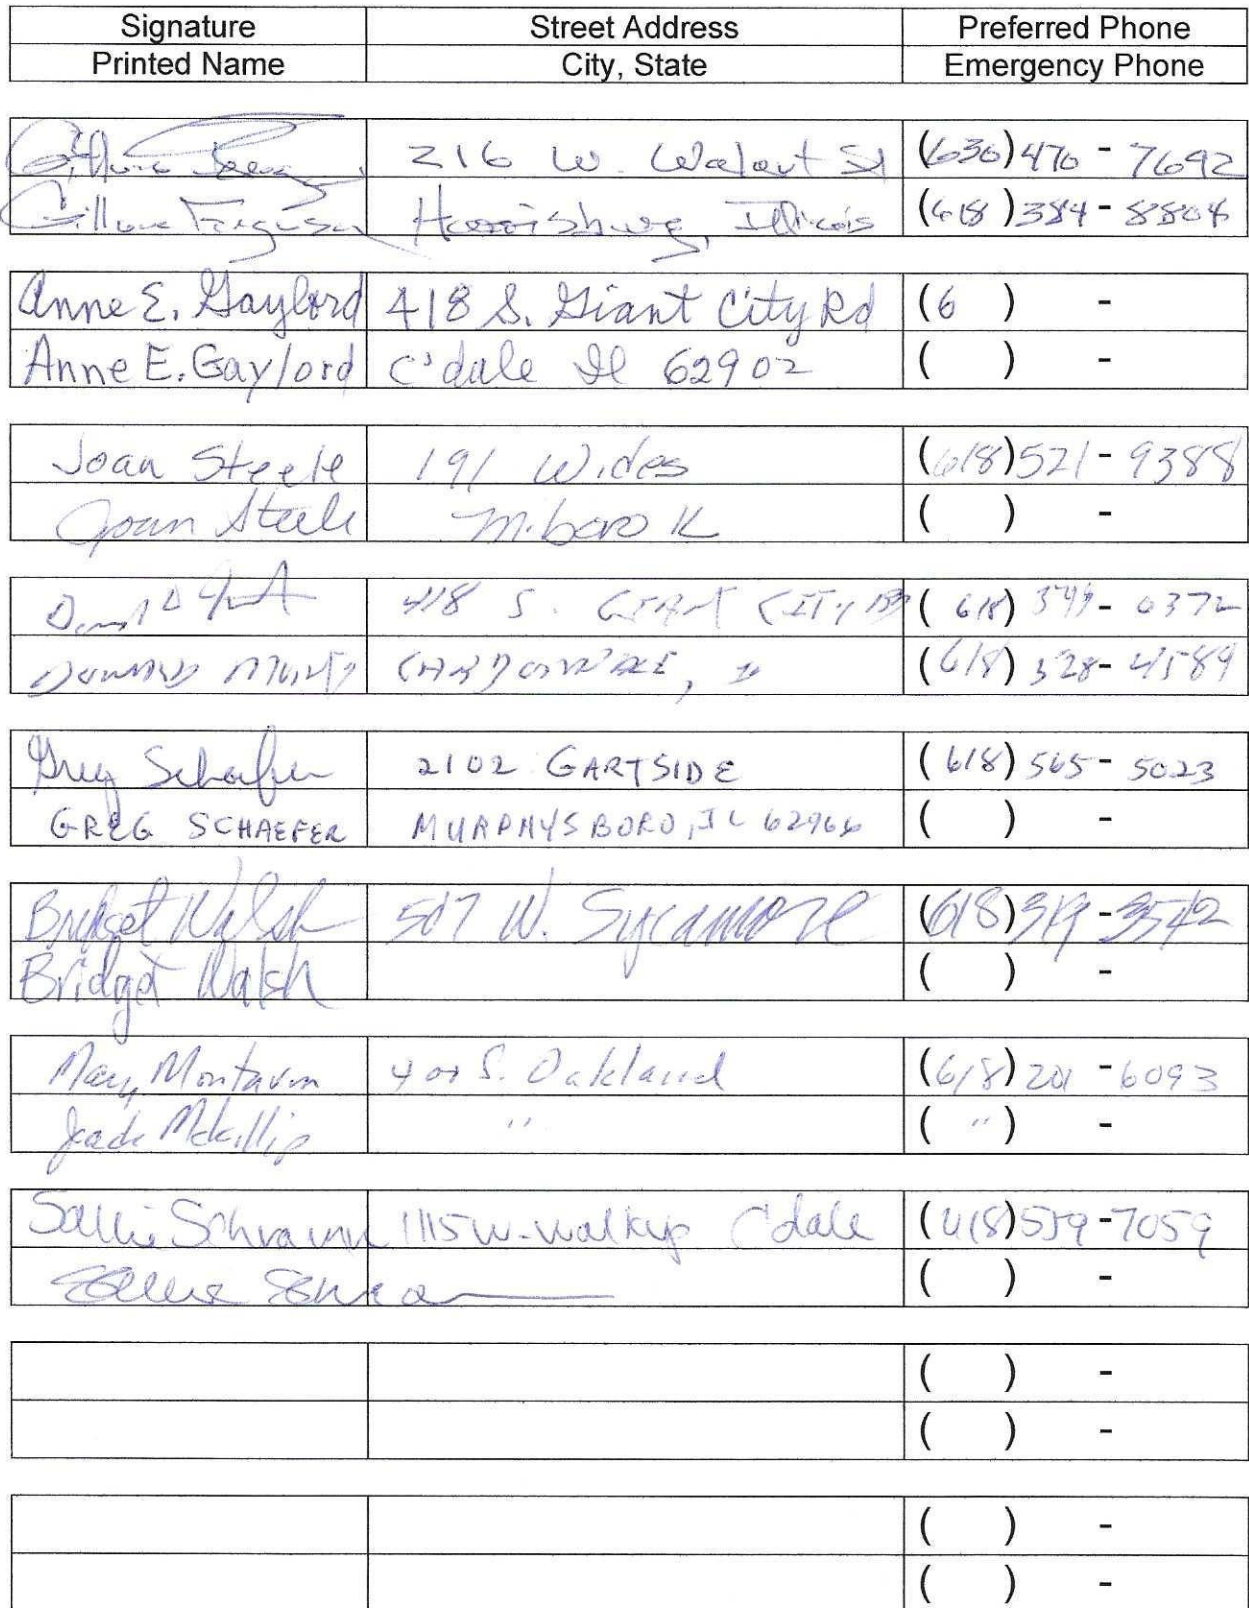 Signature Street Address Preferred Phone
Printed Name City, State Emergency Phone
216 W. Walnut St (630) 470 - 7692
Gillum Ferguson Harrisburg, Illinois (618) 384 - 8804
Anne E. Gaylord 418 S. Giant City Rd (6 ) -
Anne E. Gaylord C'dale Il 62902 ( ) -
Joan Steele 191 Wides (618) 521 - 9388
Joan Steele M'boro IL ( ) -
418 S. GIANT CITY RD (618) - 0372
CARBONDALE, IL (618) 528 - 4589
Greg Schaefer 2102 GARTSIDE (618) 565 - 5023
GREG SCHAEFER MURPHYSBORO, IL 62966 ( ) -
Bridget Walsh 507 W. Sycamore (618) 319 - 3542
Bridget Walsh ( ) -
Mary Montavon S. Oakland (618) 201 - 6093
Jack McKillip " ( " ) -
Sallie Schramm 1115 W. Walkup C'dale (618) 559 - 7059
Sallie ( ) -
( ) -
( ) -
( ) -
( ) -